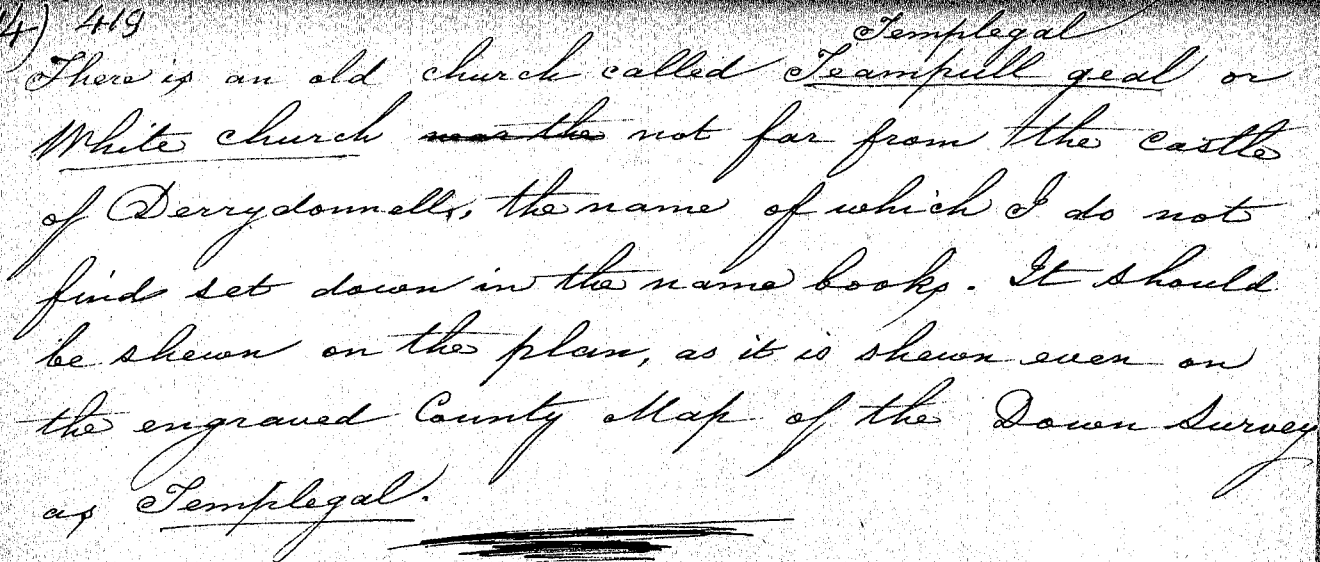 4) 419
Templegal
There is an old church called Teampull geal or
White church near the not far from the castle
of Derrydonnell, the name of which I do not
find set down in the name books. It should
be shewn on the plan, as it is shewn even on
the engraved County Map of the Down Survey
as Templegal.